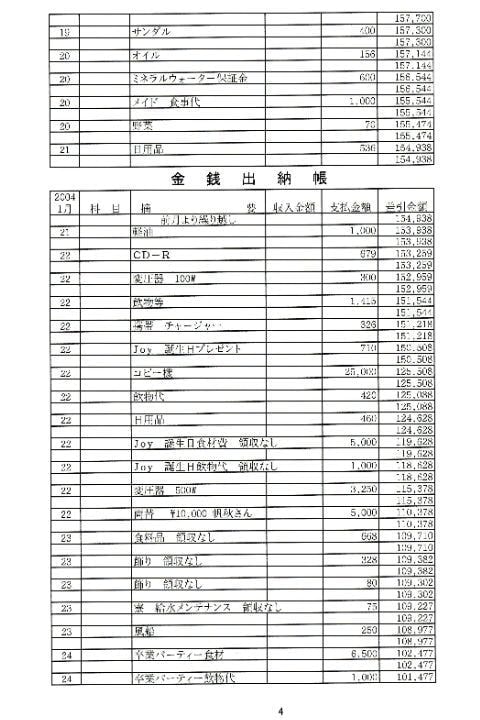 157,700
19 サンダル 400 157,300
157,300
20 オイル 156 157,144
157,144
20 ミネラルウォーター保証金 600 156,544
156,544
20 メイド 食事代 1,000 155,544
155,544
20 野菜 70 155,474
155,474
21 日用品 536 154,938
154,938
金銭出納帳
2004
1月 科目 摘要 収入金額 支払金額 差引金額
前月より繰り越し 154,938
21 軽油 1,000 153,938
153,938
22 CD-R 679 153,259
153,259
22 変圧器 100W 300 152,959
152,959
22 飲物等 1,415 151,544
151,544
22 携帯 チャージャー 326 151,218
151,218
22 Joy 誕生日プレゼント 710 150,508
150,508
22 コピー機 25,000 125,508
125,508
22 飲物代 420 125,088
125,088
22 日用品 460 124,628
124,628
22 Joy 誕生日食材費 領収なし 5,000 119,628
119,628
22 Joy 誕生日飲物代 領収なし 1,000 118,628
118,628
22 変圧器 500W 3,250 115,378
115,378
22 両替 ¥10,000 帆秋さん 5,000 110,378
110,378
23 食料品 領収なし 668 109,710
109,710
23 飾り 領収なし 328 109,382
109,382
23 飾り 領収なし 80 109,302
109,302
23 寮 給水メンテナンス 領収なし 75 109,227
109,227
23 風船 250 108,977
108,977
24 卒業パーティー食材 6,500 102,477
102,477
24 卒業パーティー飲物代 1,000 101,477
4